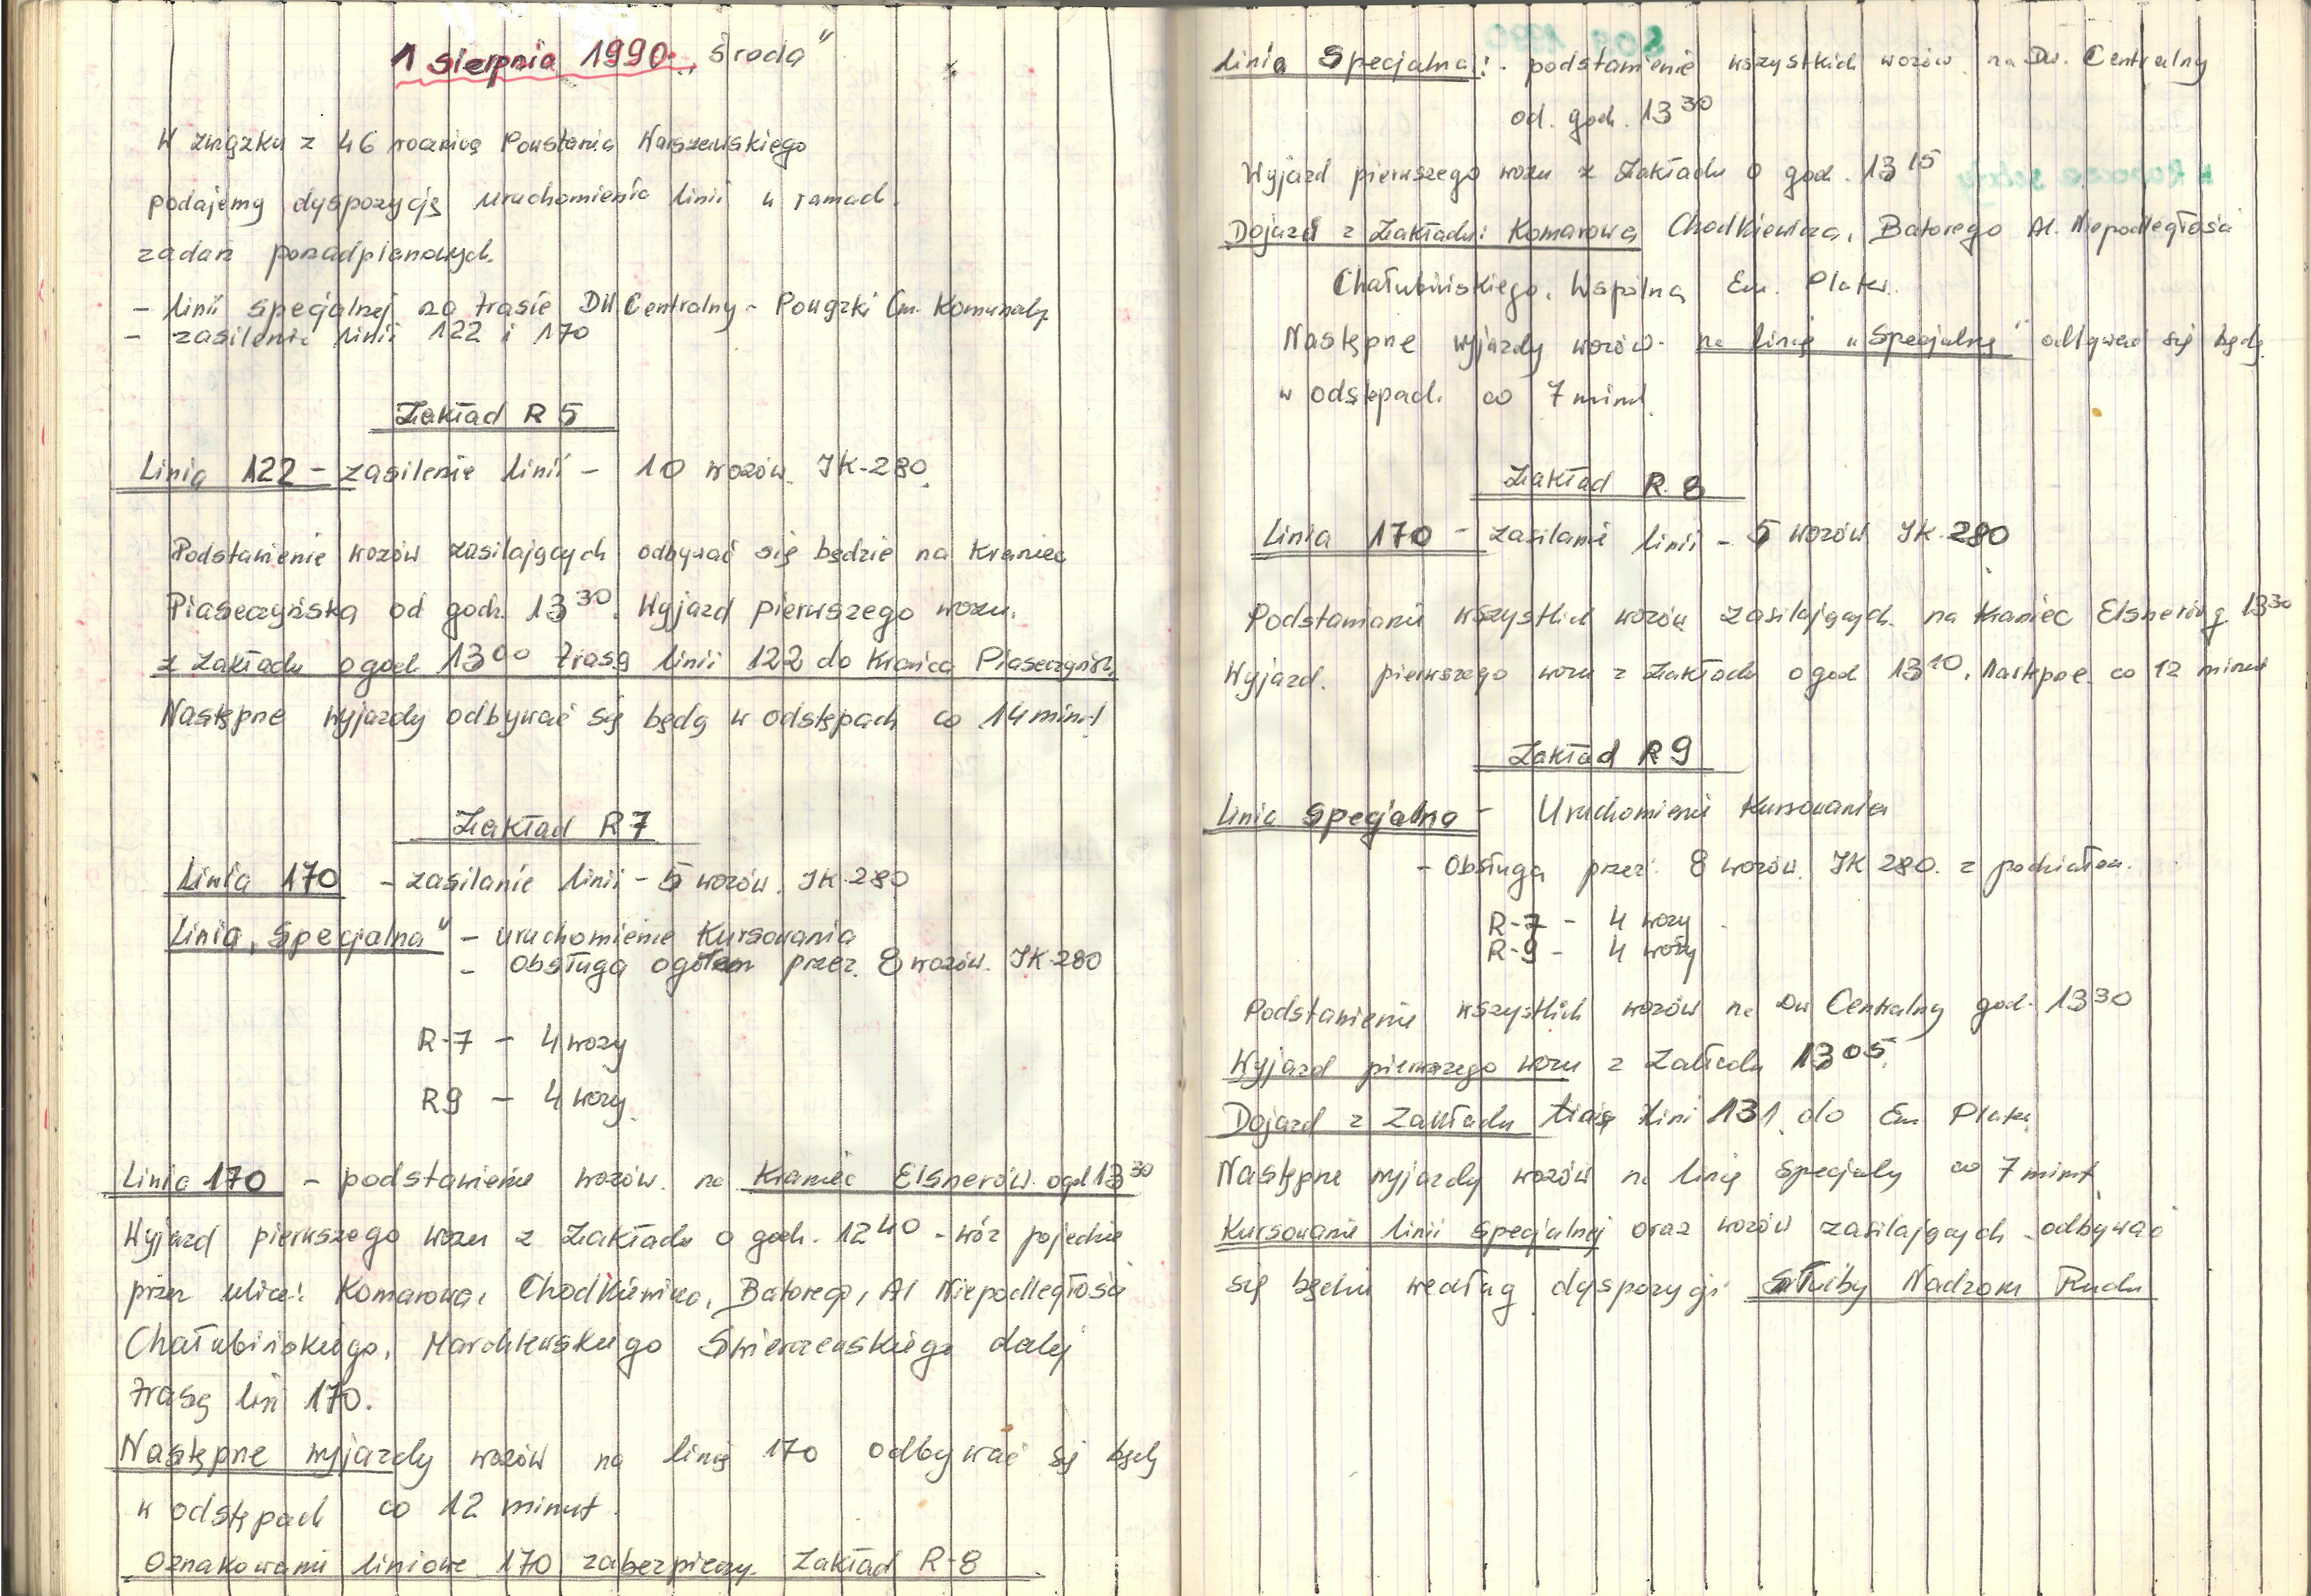 1 sierpnia 1990r. „Środa"
W związku z 46 rocznicą Powstania Warszawskiego
podajemy dyspozycję uruchomienia linii w ramach
zadań ponadplanowych.
- linii specjalnej na trasie DW Centralny - Powązki Cm. Komunalny
- zasilenie linii 122 i 170
Zakład R 5
Linia 122 - zasilenie linii - 10 wozów JK-280.
Podstawienie wozów zasilających odbywać się będzie na Kraniec
Piaseczyńska od godz. 13 30. Wyjazd pierwszego wozu
z zakładu o godz 13 00 trasą linii 122 do Krańca Piaseczyńska
Następne wyjazdy odbywać się będą w odstępach co 14 minut
Zakład R 7
Linia 170 - zasilanie linii - 5 wozów JK-280
Linia „Specjalna" - uruchomienie Kursowania
- Obsługa ogółem przez 8 wozów. JK-280
R-7 - 4 wozy
R9 - 4 wozy
Linia 170 - podstawienie wozów na Kraniec Elsnerów. o god 13 30
Wyjazd pierwszego wozu z Zakładu o godz. 12 40 - wóz pojedzie
przez ulice: Komarowa, Chodkiewicza, Batorego, Al Niepodległości
Chałubińskiego, Marchlewskiego Świerczewskiego dalej
trasą lini 170.
Następne wyjazdy wozów na linię 170 odbywać się będą
w odstępach co 12 minut.
Oznakowanie liniowe 170 zabezpieczy Zakład R-8
Linia Specjalna: - podstawienie wszystkich wozów na Dw. Centralny
od. godz. 13 30
Wyjazd pierwszego wozu z Zakładu o godz. 13 15
Dojazd z Zakładu: Komarowa Chodkiewicza, Batorego Al. Niepodległości
Chałubińskiego, Wspólna Em. Plater.
Następne wyjazdy wozów na linię „Specjalną" odbywać się będą
w odstępach co 7 minut.
Zakład R 8
Linia 170 - zasilanie linii - 5 wozów JK-280
Podstawianie wszystkich wozów zasilających na Kraniec Elsnerów g 13 30
Wyjazd. pierwszego wozu z Zakładu o god 13 10. Następne co 12 minut
Zakład R9
Linia specjalna - Uruchomienie Kursowania
- Obsługa przez 8 wozów JK 280. z podziałem.
R-7 - 4 wozy
R-9 - 4 wozy
Podstawienie wszystkich wozów na Dw Centralny god. 13 30
Wyjazd pierwszego wozu z Zakładu 13 05.
Dojazd z Zakładu trasą lini 131 do Em Plater
Następne wyjazdy wozów na linię Specjalną co 7 minut
Kursowanie linii specjalnej oraz wozów zasilających odbywać
się będzie według dyspozycji Służby Nadzoru Ruchu